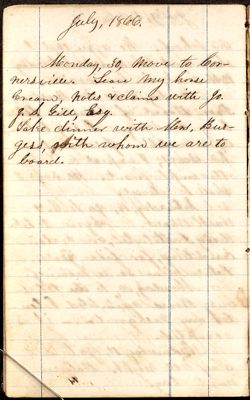 July, 1866.
Monday, 30, Move to Con-
nersville. Leave my horse
Cream, notes & claims with Jo.
J. L. Gill, Esq.
Take dinner with Mrs. Bur-
gess, with whom we are to
board.